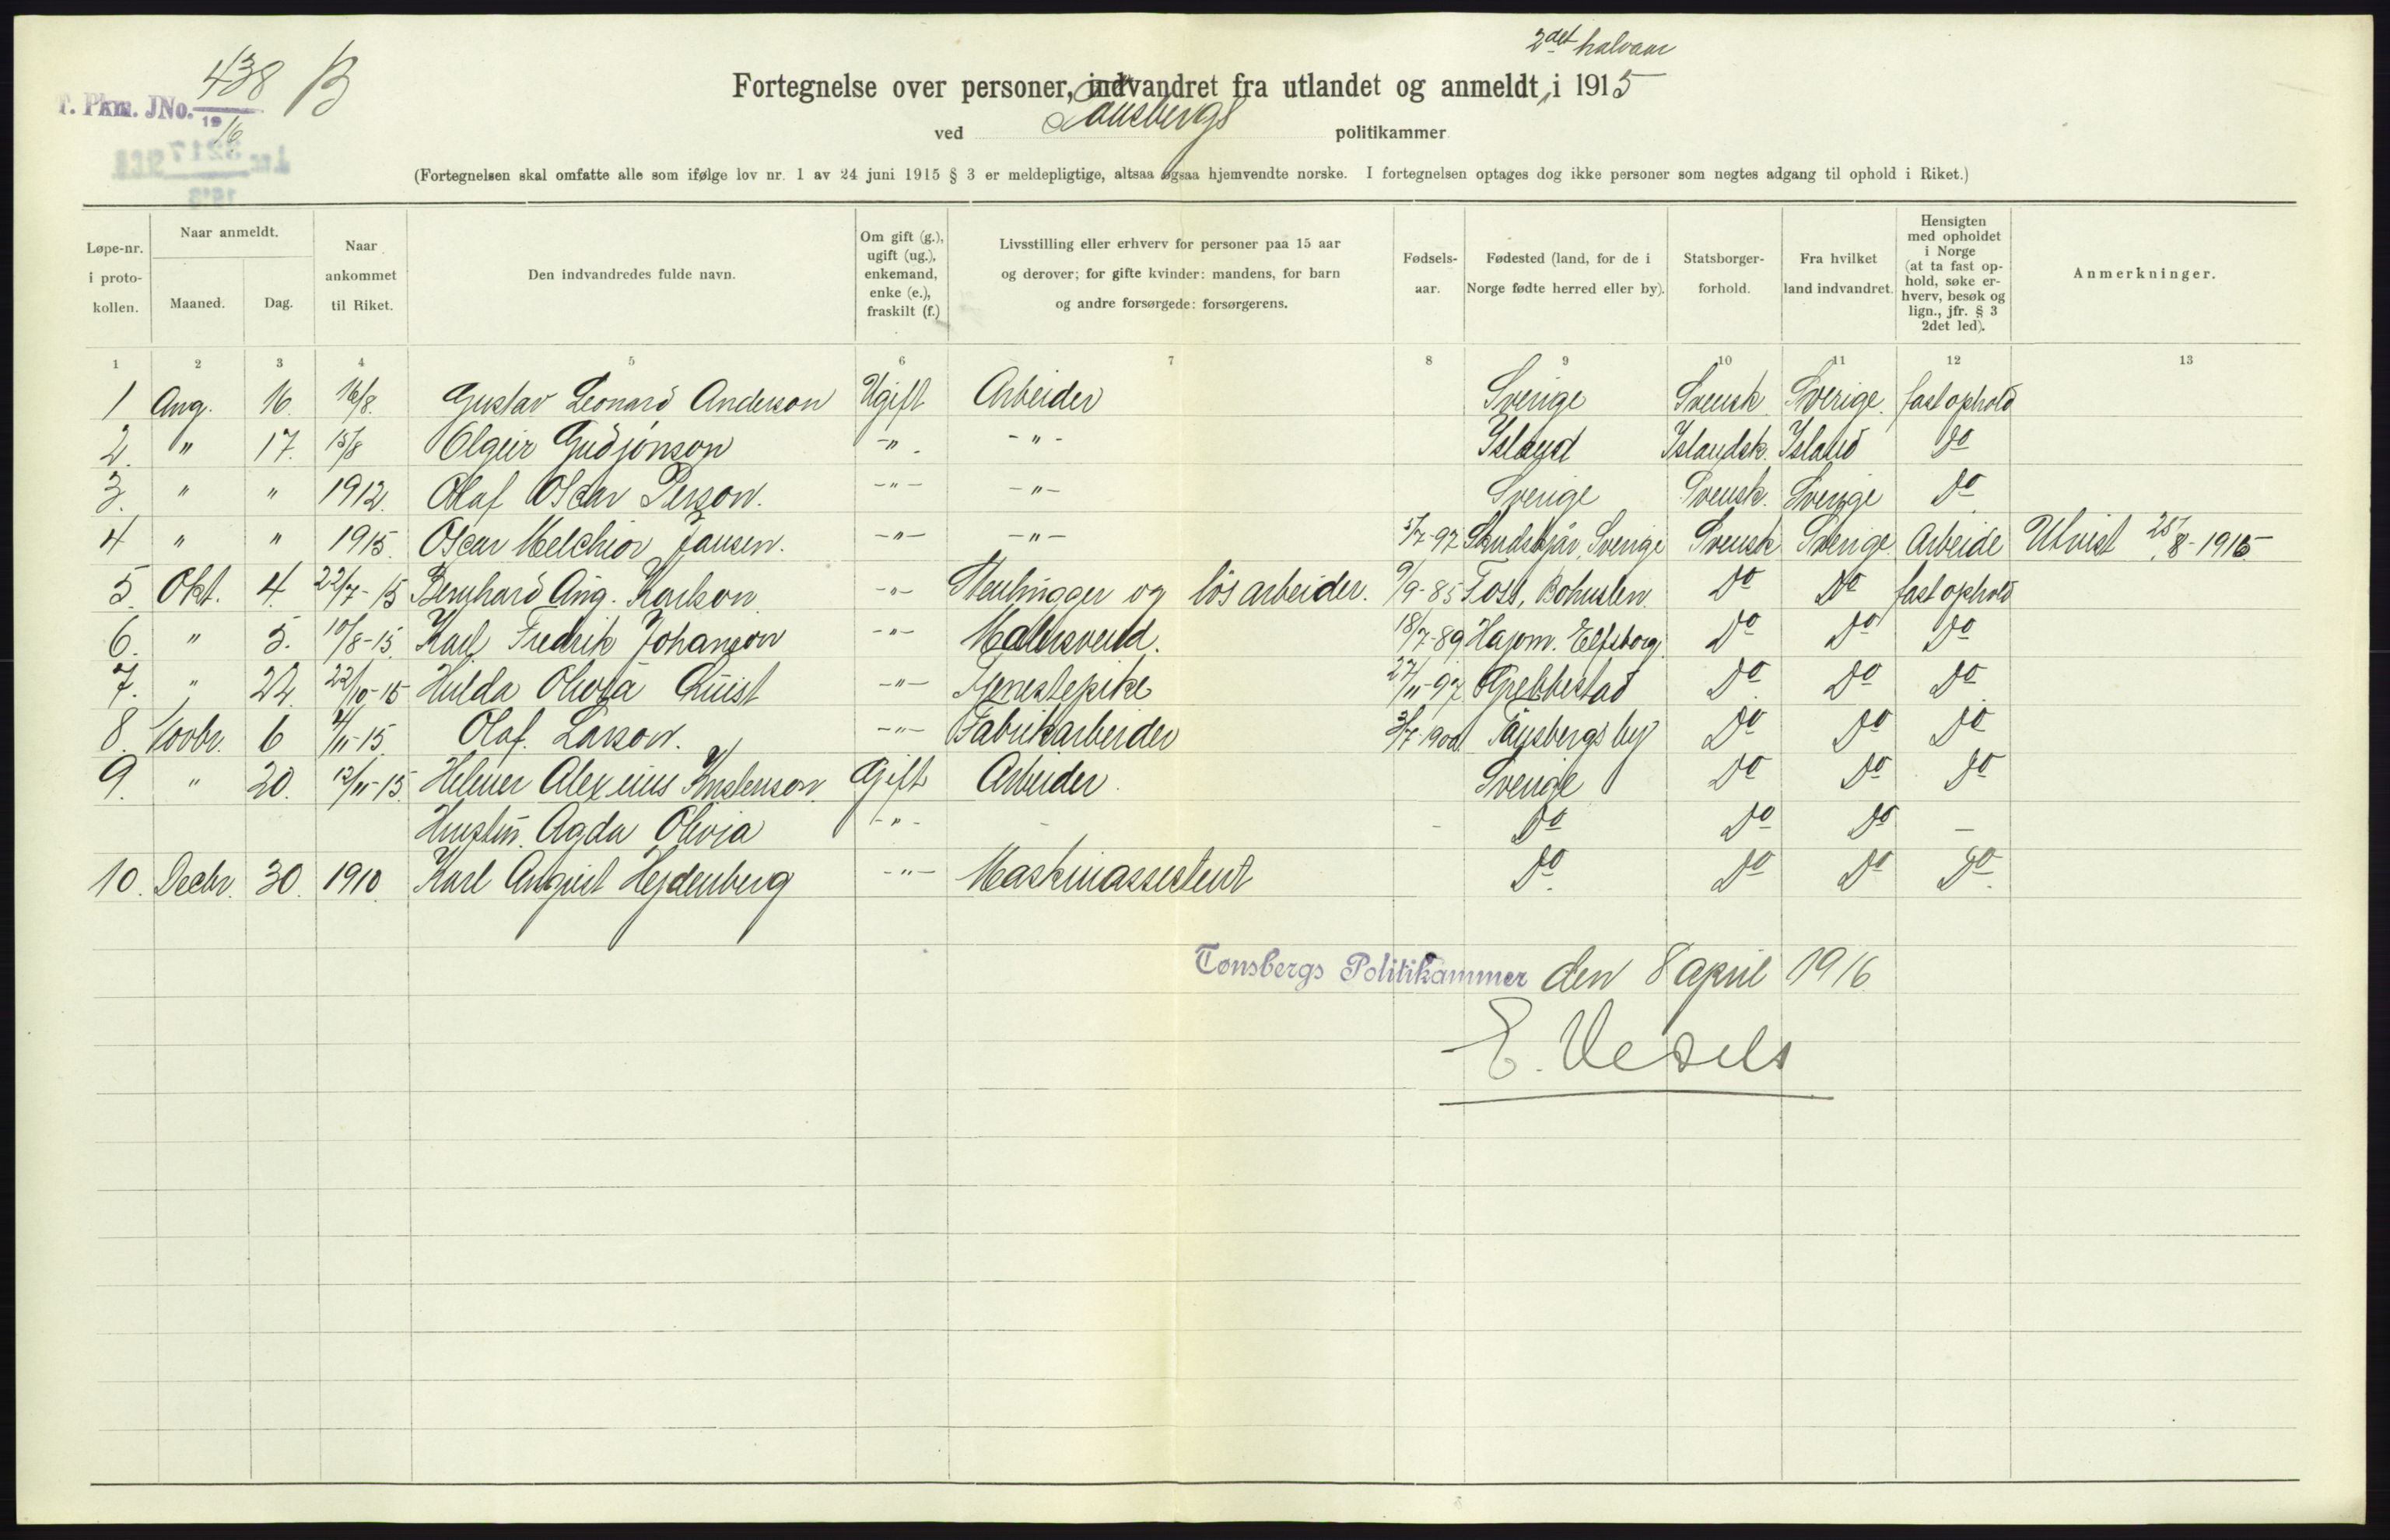 2det halvaar
438 B
T. Pkm. JNo.
19 16
Fortegnelse over personer, indvandret fra utlandet og anmeldt, i 1915
ved Tønsbergs politikammer
(Fortegnelsen skal omfatte alle som ifølge lov nr. 1 av 24 juni 1915 § 3 er meldepligtige, altsaa ogsaa hjemvendte norske. I fortegnelsen optages dog ikke personer som negtes adgang til ophold i Riket.)
Løpe-nr. i proto- kollen.
Naar anmeldt.
Maaned. Dag.
Naar ankommet til Riket.
Den indvandredes fulde navn.
Om gift (g.), ugift (ug.), enkemand, enke (e.), fraskilt (f.)
Livsstilling eller erhverv for personer paa 15 aar og derover; for gifte kvinder: mandens, for barn og andre forsørgede: forsørgerens.
Fødsels- aar.
Fødested (land, for de i Norge fødte herred eller by).
Statsborger- forhold.
Fra hvilket land indvandret.
Hensigten med opholdet i Norge (at ta fast op- hold, søke er- hverv, besøk og lign., jfr. § 3 2det led).
Anmerkninger.
1 2 3 4 5 6 7 8 9 10 11 12 13
1 Aug. 16. 16/8. Gustav Leonard Anderson Ugift Arbeider Sverige Svensk Sverige. fast ophold
2. " 17. 15/8 Olgeir Gudjónson -"- -"- Island Islandsk. Island Do
3. " " 1912. Olaf Oscar Person. -"- -"- Sverige Svensk. Sverige Do
4 " " 1915. Oscar Melchior Jansen. -"- -"- 5/7-97 Sverige Svensk Sverige Arbeide Utvist 25/8-1915
5. Okt. 4. 22/7-15 Bernhard Aug. Karlson -"- Stenhugger og løsarbeider. 9/9-85 Foss, Bohuslen. Do Do fast ophold
6. " 5. 10/8-15. Karl Fredrik Johanson -"- Malersvend. 18/7-89 Hajom. Elfsborg. Do Do Do
7. " 22. 22/10-15 Hulda Olivia Quist -"- Tjenestepike 27/11-97 Grebbestad Do Do Do
8. Novbr. 6 4/11-15. Olaf Larson. -"- Fabrikarbeider 3/7-1900 Tønsbergs by Do Do Do
9. " 20. 12/11-15. Helmer Alexius Kristenson Gift Arbeider. Sverige Do Do Do
Hustru. Agda Olivia -"- - - Do Do Do -
10. Decbr. 30. 1910. Karl August Hejdenberg -"- Maskinassistent Do. Do Do Do.
Tønsbergs Politikammer den 8 april 1916
E. Vesels